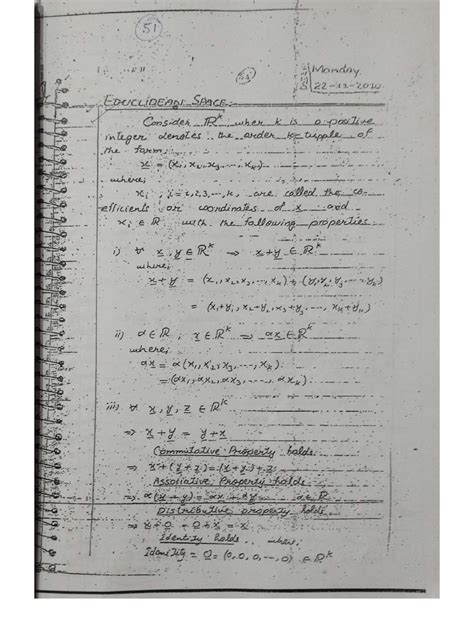 51
51
Monday
22-11-2010
EUCLIDEAN SPACE:-
Consider ℝᵏ wher k is a positive
integer denotes the order k-tupple of
the form;
x = (x₁, x₂, x₃, ..., xₖ)
where;
xᵢ, i = 1,2,3,..., k, are called the co-
efficients or coordinates of x and
xᵢ ∈ ℝ with the following properties
i) ∀ x, y ∈ ℝᵏ ⇒ x+y ∈ ℝᵏ
where;
x+y = (x₁, x₂, x₃, ..., xₖ) + (y₁, y₂, y₃, ..., yₖ)
= (x₁+y₁, x₂+y₂, x₃+y₃, ..., xₖ+yₖ)
ii) α ∈ ℝ, x ∈ ℝᵏ ⇒ αx ∈ ℝᵏ
where;
αx = α(x₁, x₂, x₃, ..., xₖ)
= (αx₁, αx₂, αx₃, ..., αxₖ)
iii) ∀ x, y, z ∈ ℝᵏ
⇒ x+y = y+x
Commutative Property holds
⇒ x+(y+z) = (x+y)+z
Associative Property holds
⇒ α(x+y) = αx + αy, α ∈ ℝ
Distributive property holds
⇒ x+0 = 0+x = x
Identity holds where;
Identity = 0 = (0, 0, 0, ..., 0) ∈ ℝᵏ